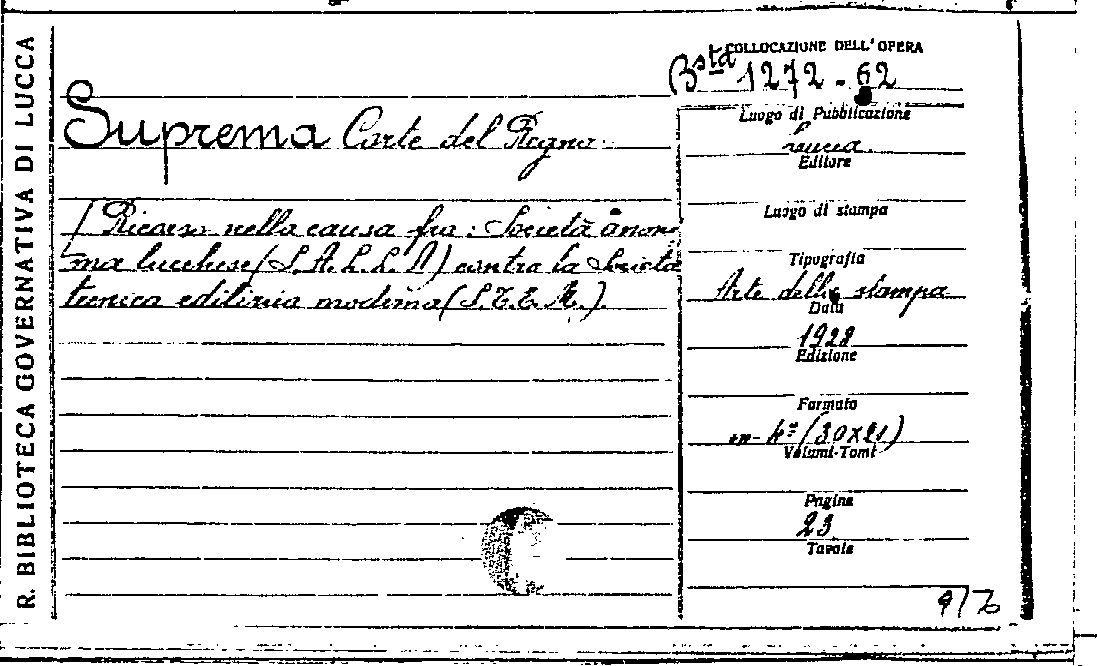 R. BIBLIOTECA GOVERNATIVA DI LUCCA
COLLOCAZIONE DELL'OPERA
Bsta 1272 - 62
Suprema Corte del Regno.
/ Ricorso nella causa fra: Società anoni
ma lucchese (S.A.L.L.A) contro la Società
tecnica edilizia moderna (S.T.E.M.)
Luogo di Pubblicazione
Lucca
Editore
Luogo di stampa
Tipografia
Arte della stampa
Data
1928
Edizione
Formato
in-4º (30x21)
Volumi-Tomi
Pagine
23
Tavole